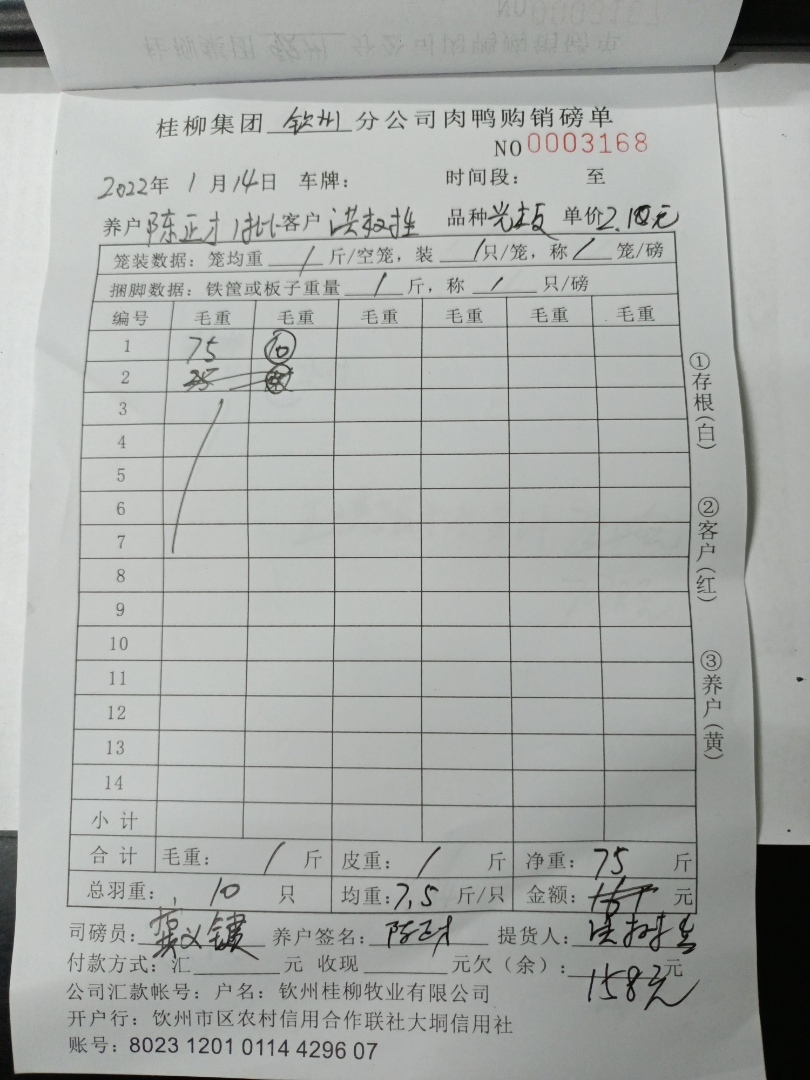 桂柳集团 钦州 分公司肉鸭购销磅单
NO 0003168
2022年 1月14日 车牌： 时间段： 至
养户 陈正才 1批 客户 洪 品种 单价2.10元
笼装数据：笼均重 / 斤/空笼，装 / 只/笼，称 / 笼/磅
捆脚数据：铁筐或板子重量 / 斤，称 / 只/磅
编号 毛重 毛重 毛重 毛重 毛重 毛重
1 75 10
2
3
4
5
6
7
8
9
10
11
12
13
14
小计
合计 毛重： / 斤 皮重： / 斤 净重：75 斤
总羽重： 10 只 均重：7.5 斤/只 金额： 元
司磅员： 养户签名：陈正才 提货人：洪
付款方式：汇 元 收现 元欠（余）： 元
158元
公司汇款帐号：户名：钦州桂柳牧业有限公司
开户行：钦州市区农村信用合作联社大垌信用社
账号：8023 1201 0114 4296 07
①存根（白）
②客户（红）
③养户（黄）